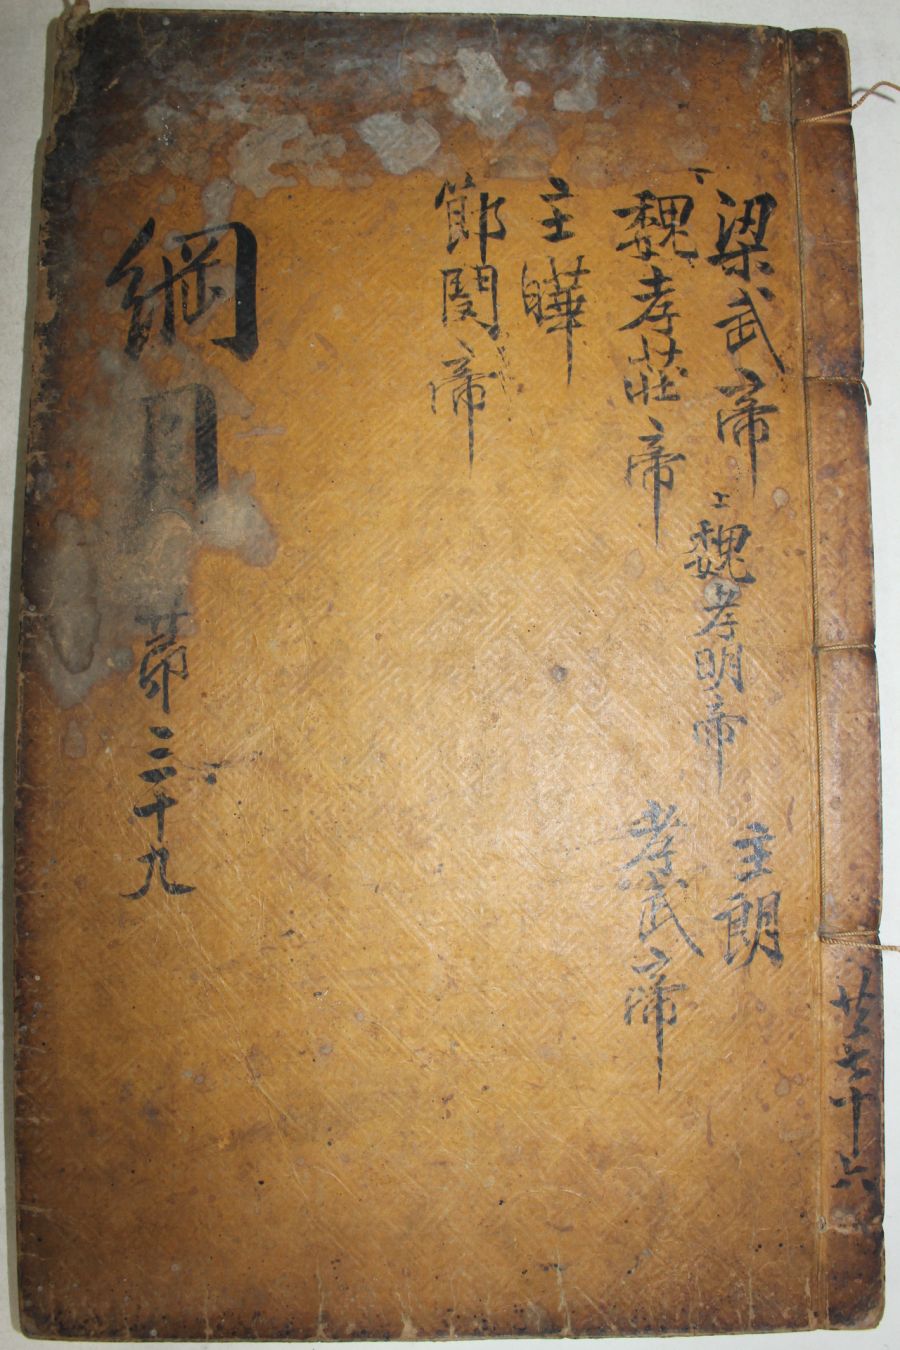 共七十六
梁武帝 上 魏孝明帝 主朗
下 魏孝莊帝 孝武帝
主曄
節閔帝
綱目 第三十九